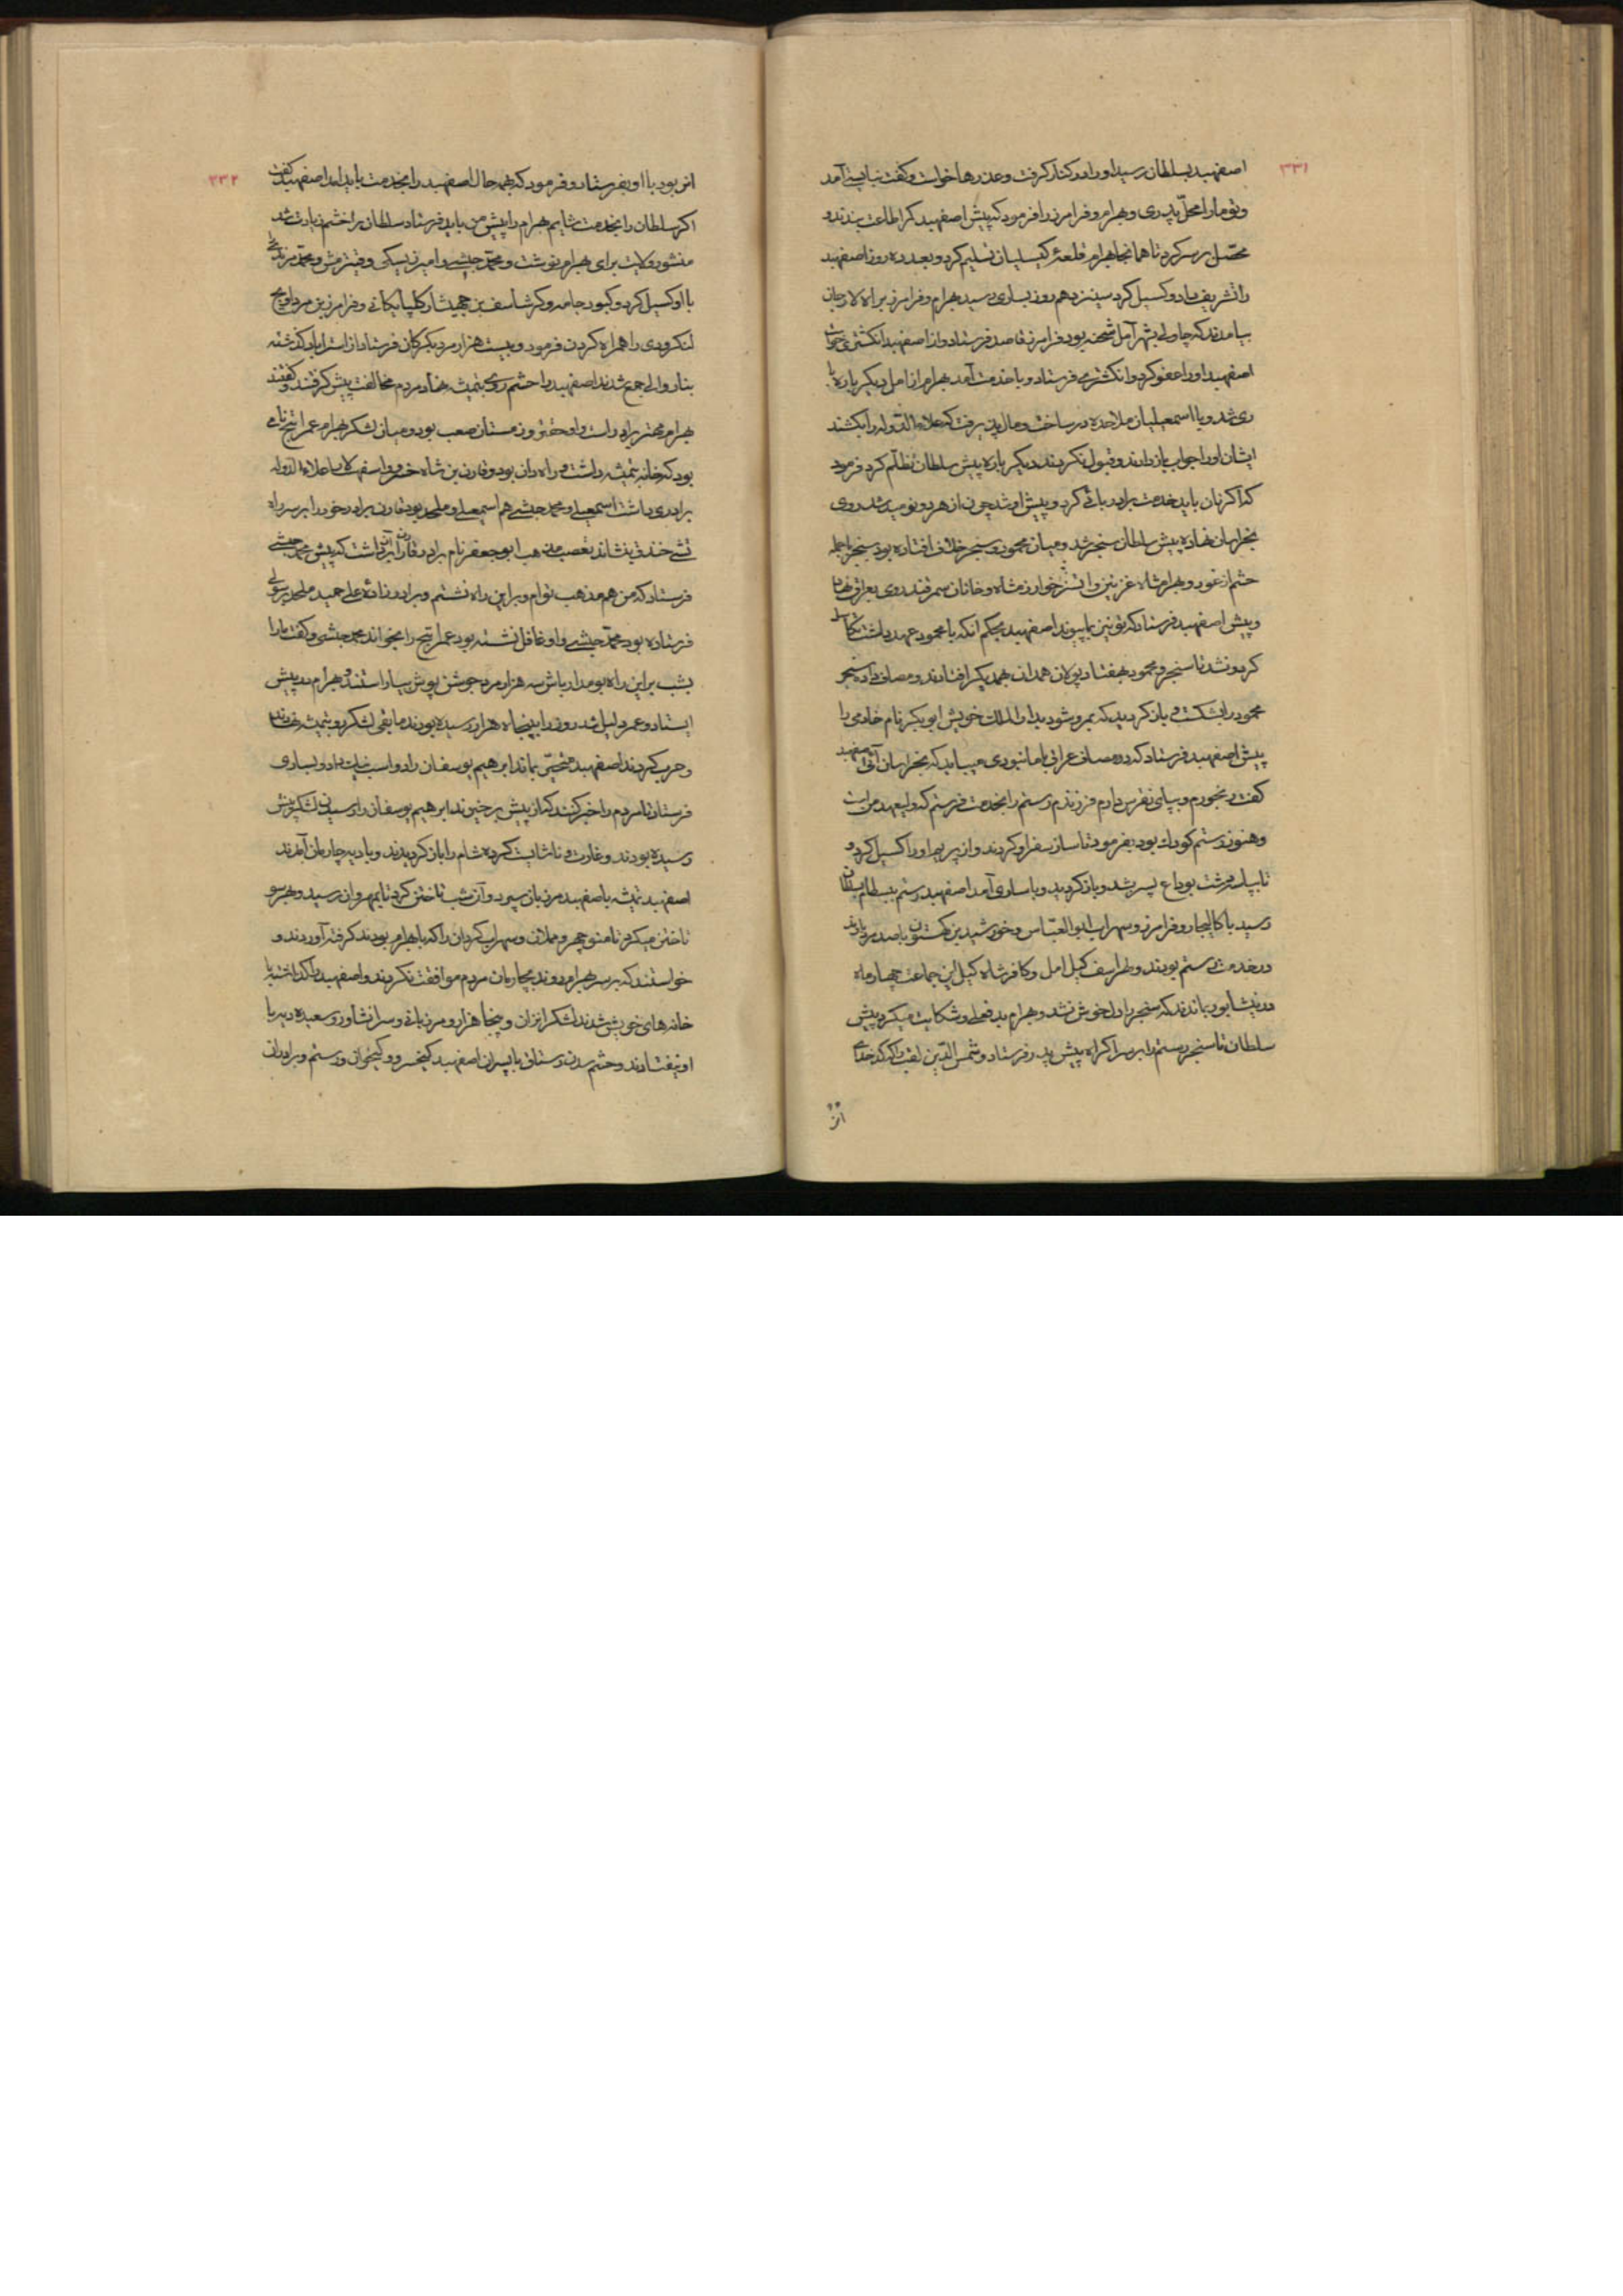 ۳۳۱
اصفهبد بسلطان رسید او را در کنار گرفت و عذرها خواست و گفت نبایستی آمد
و تو ما را محل پدری و بهرام و فرامرز را فرمود که پیش اصفهبد کمر اطاعت بندند و
محصل بر سر کرد تا همانجا بهرام قلعهٔ کیسلیان تسلیم کرد و بعد ده روز اصفهبد
را تشریف داد و کسیل کرد سیزدهم روز بساری رسید بهرام و فرامرز براه لارجان
بیامدند که چاولی بشهر آمل شحنه بود فرامرز قاصد فرستاد و از اصفهبد انگشتری خواست
اصفهبد او را عفو کرد و انگشتری فرستاد و با خدمت آمد بهرام از آمل دیگر باره با
ری شد و با اسمعیلیان ملاحده در ساخت و مال پذیرفت که علاء الدوله را بکشند
ایشان او را جواب باز دادند و قبول نکردند دیگر باره پیش سلطان تظلم کرد فرمود
که اگر نان باید خدمت برادر بائی کرد و پیش او شد چون از هر دو نومید شد روی
بخراسان نهاده پیش سلطان سنجر شد و میان محمود و سنجر خلاف افتاده بود سنجر با جمله
حشم از غور و بهرامشاه غزنین و اتسز خوارزمشاه و خانان سمرقند روی بعراق نهاد
و پیش اصفهبد فرستاد که تو نیز بما پیوند اصفهبد بحکم آنکه با محمود عهد داشت تکاسل
کرد و نشد تا سنجر و محمود بهفتاد پولان همدان بهمدیگر افتادند و مصاف داده سنجر
محمود را بشکست و باز گردید که بمرو شود بدار الملک خویش ابوبکر نام خادمی را
پیش اصفهبد فرستاد که در مصاف عراق با ما نبودی میباید که بخراسان آئی اصفهبد
گفت رنجورم و بپای نقرس دارم فرزندم رستم را بخدمت فرستم که ولیعهد من است
و هنوز رستم کودک بود بفرمود تا ساز سفر او کردند و از پریم او را کسیل کرد و
تا بپل مرشت بوداع پسر شد و باز گردید و با ساری آمد اصفهبد رستم ببسطام بسلطان
رسید باکالیجار و فرامرز و سهراب ابو العباس و خورشید بن کستون با صد مرد باوند
در خدمت رستم بودند و طراسف کیل امل و کافرشاه کیل این جماعت چهار ماه
در نیشابور بماندند که سنجر را دل خوش نشد و بهرام بد فعلی و شکایت میکرد پیش
سلطان تا سنجر رستم را بر سر اکراه پیش پدر فرستاد و شمس الدین لقب را که کدخدای
اتز
۳۳۲
اتز بود با او بفرستاد و فرمود که بهمه حال اصفهبد را بخدمت باید آمد اصفهبد گفت
اگر سلطان را بخدمت شایم بهرام را پیش من باید فرستاد سلطان را خشم زیادت شد
منشور ولایت برای بهرام نوشت و محمد حبشی و امیر زیسکی و محمد مرزبان
با او کسیل کرد و کبود جامه و گرشاسف بن جمیشار کلپایکانی و فرامرز بن مرداویج
لنکرودی را همراه کردن فرمود و بیست هزار مرد بگرکان فرستاد از استراباد گذشته
جمع شدند اصفهبد با حشم روی بتمیشه نهاد مردم مخالفت پیش گرفتند و گفتند
بهرام مهتر برادر است و او حقتر و زمستان صعب بود و میان لشکر بهرام عمر نامی
بود که خانه بتمیشه داشت و راه دان بود و قارن بن شاه خسرو اسفهسلار علاء الدوله
برادری داشت اسمعیلی و محمد حبشی هم اسمعیلی و ملحد بود قارن برادر خود را بر سر راه
خندق بنشاند تعصب مذهب ابو جعفر نام برادر قارن بر آن داشت که پیش محمد حبشی
فرستاد که من هم مذهب توام و بر این راه نشستم و برادرزادهٔ علی حمید ملحد برسولی
فرستاده بود محمد حبشی و او غافل نشسته بود عمر را بخواند محمد حبشی و گفت ما را
بشب بر این راه بومدار باش سه هزار مرد جوشن پوش بیاراستند و بهرام در پیش
ایستاد و عمر دلیل شد روز را بپنجاه هزار رسیده بودند مابقی لشکر رو بتمیشه نهادند
و حرب کردند اصفهبد متحیر بماند ابرهیم یوسفان را دو اسب نیک داد و بساری
فرستاد تا مردم را خبر کنند که از پیش برخیزند ابرهیم یوسفان را رسیدن لشکر پیش
رسیده بودند و غارت و ناشایست کرده شام را باز گردیدند و با دیه چارمان آمدند
اصفهبد تمیشه باصفهبد مرزبان سپرد و آن شب تاختن کرد تا بمهروان رسید و بهر سو
تاختن میکرد تا منوچهر و مملان و سهراب کردان را که با بهرام بودند گرفته آوردند و
خواستند که بر سر بهرام روند بچارمان مردم موافقت نکردند و اصفهبد را گذاشته با
خانه های خویش شدند لشکر ایزان و پنجا هزار و مرزبانی و سرانشاور و سعیده دیه با
او بیفتادند و حشم مدن رستاق با پسران اصفهبد کیخسرو و کیخواز و رستم و برادران